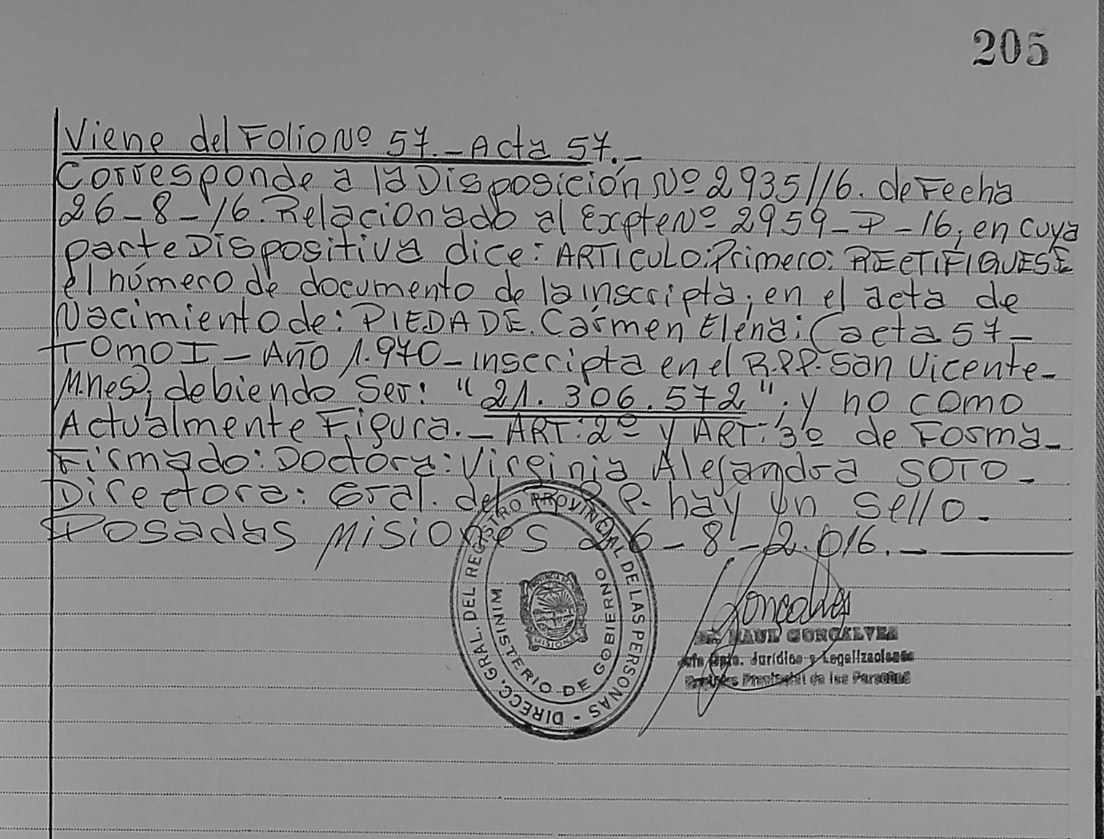 205
Viene del Folio Nº 57.- Acta 57.-
Corresponde a la Disposición Nº 2935/16. de Fecha
26-8-16. Relacionado al Expte Nº 2959-P-16, en cuya
parte Dispositiva dice: ARTICULO: Primero: RECTIFIQUESE
el número de documento de la inscripta, en el acta de
Nacimiento de: PIEDADE. Carmen Elena: (acta 57-
TOMO I - Año 1.970- inscripta en el R.P.P. San Vicente-
Mnes), debiendo Ser: "21.306.572"; y no como
Actualmente Figura.- ART: 2º y ART: 3º de Forma-
Firmado: Doctora: Virginia Alejandra SOTO-
Directora: Gral. del R.P. hay un Sello-
Posadas Misiones 26-8-2.016.-
DIRECC. GRAL. DEL REGISTRO PROVINCIAL DE LAS PERSONAS -
MINISTERIO DE GOBIERNO
MISIONES
Gonçalves
RAUL GONÇALVES
Dpto. Jurídico y Legalizaciones
Registro Provincial de las Personas